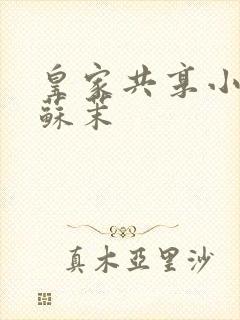 皇家共享小
蘇茉
真木亞里沙